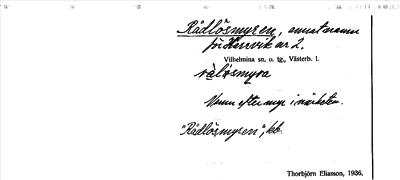 Rådlösmyren, annat namn
för Herrvik nr 2.
Vilhelmina sn. o. tg., Västerb. l.
rålösmyra
Namn efter myr i närheten.
"Rådlösmyren", kb.
Thorbjörn Eliasson, 1936.